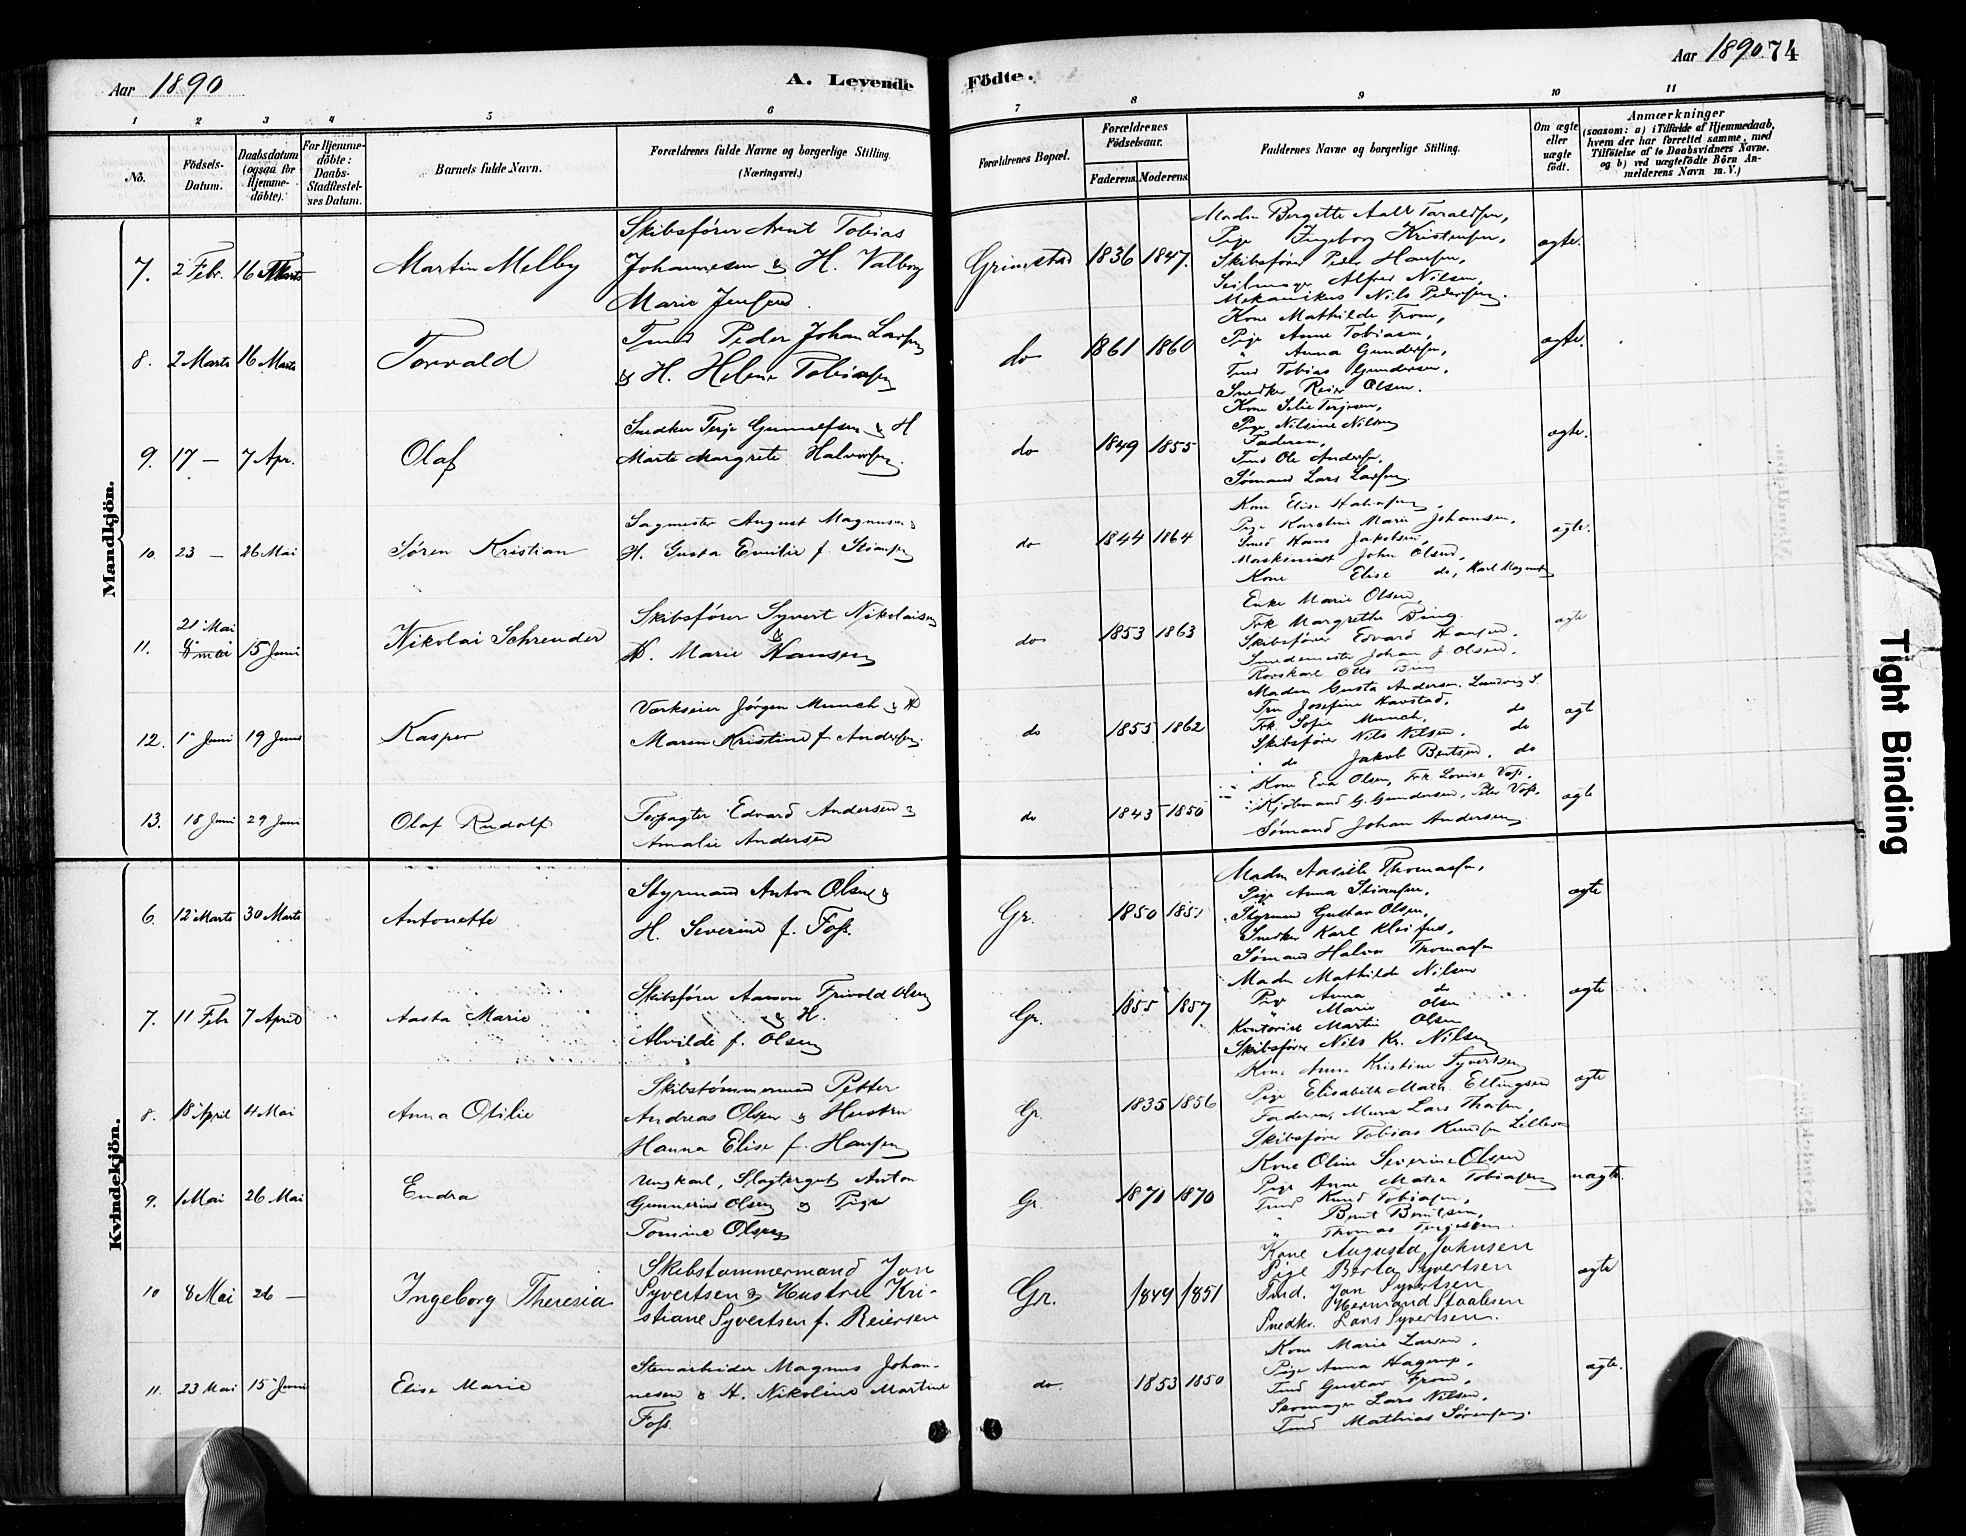 Aar 1890
A. Levende Födte.
Aar 1890
74
1 2 3 4 5 6 7 8 9 10 11
No.
Födsels-Datum.
Daabsdatum (ogsaa for Hjemme-döbte).
For Hjemme-döbte: Daabs-Stadfæstel-ses Datum.
Barnets fulde Navn.
Forældrenes fulde Navne og borgerlige Stilling. (Næringsvei.)
Forældrenes Bopæl.
Forældrenes Födselsaar.
Faderens. Moderens.
Faddernes Navne og borgerlige Stilling.
Om ægte eller uægte födt.
Anmærkninger
(saasom: a) i Tilfælde af Hjemmedaab, hvem der har forrettet samme, med Tilföielse af to Daabsvidners Navne, og b) ved uægtefödte Börn Anmelderens Navn m. V.)
Mandkjön.
7. 2 Febr. 16 Marts
Martin Melby
Skibsfører Arent Tobias
Johannesen & H. Valborg
Marie Jensen
Grimstad 1836 1847.
Madm Bergette Aalb Taraldsen,
Pige Ingeborg Kristensen,
Skibsfører Peder Hansen,
Seilmager Alfred Nilsen,
Mekanikus Nils Pedersen.
ægte.
8. 2 Marts 16 Marts
Torvald
Tmd Peder Johan Larsen
& H. Helene Tobiasen
do 1861 1860
Kone Mathilde From,
Pige Anne Tobiasen,
" Anna Gundersen,
Tmd Tobias Gundersen,
Snedker Reier Olsen.
ægte.
9. 17 — 7 Apr.
Olaf
Snedker Terje Gunnulfsen & H
Marte Margrete Halvorsen.
do 1849 1855
Kone Silie Terjesen,
Pige Nilsine Nilsen
Faderen,
Tmd Ole Andersen,
Sømand Lars Larsen.
ægte.
10. 23 — 26 Mai
Søren Kristian
Sagmester August Magnusen &
H. Gusta Emilie f. Stiansen
do 1844 1864
Kone Elise Halvorsen,
Pige Karoline Marie Johansen,
Smed Hans Jakobsen,
Maskinist John Olsen,
Kone Elise do, Karl Magnusen
ægte.
11. 21 Mai 8 mai 15 Juni
Nikolai Schrender
Skibsfører Syvert Nikolaisen
& H. Marie Hansen
do 1853 1863
Enke Marie Olsen,
Frk Margrethe Bing.
Skibsfører Edvard Hansen.
Smedemester Johan J. Olsen.
Rorskarl Otto Bing
ægte
12. 1 Juni 19 Juni
Kasper
Værkseier Jørgen Munch & H
Maren Kristine f. Andersen.
do 1855 1862
Madm Gusta Andersen. Landvig S.
Fru Josefine Havstad, do
Frk. Sofie Munch, do
Skibsfører Nils Nilsen. do
do Jakob Bentsen. do
ægte
13. 18 Juni 29 Juni
Olaf Rudolf
Forpagter Edvard Andersen &
Amalie Andersen
do 1843 1850
Kone Eva Olsen, Frk Lovise Voss.
Kjøbmand G. Gundersen, Peter Voss.
Sømand Johan Andersen
ægte
Kvindekjön.
6. 12 Marts 30 Marts
Antonette
Styrmand Anton Olsen &
H. Severine f. Foss.
Gr. 1850 1851
Madm Aasille Thomassen,
Pige Anna Stiansen,
Styrmand Gustav Olsen,
Snedker Karl
Sømand Halvor Thomassen
ægte
7. 11 Febr 7 April
Aasta Marie
Skibsfører Aanon Frivold Olsen
& H.
Alvilde f. Olsen
Gr. 1855 1857
Madm Mathilde Nilsen
Pige Anna do
" Marie Olsen
Kontorist Martin Olsen
Skibsfører Nils Kr. Nilsen
ægte
8. 18 April 4 Mai
Anna Otilie
Skibstømmermand Petter
Andreas Olsen & Hustru
Hanna Elise f. Hansen
Gr. 1835 1856
Kone Anne Kristine Syvertsen
Pige Elisabeth Math. Ellingsen
Faderen, Murer Lars Thorsen,
Skibsfører Tobias Knudsen Lillesand
ægte
9. 1 Mai 26 Mai
Endra
Ungkarl, Slagtergut Anton
Gunnerius Olsen & Pige
Tomine Olsen
Gr. 1871 1870
Kone Oline Severine Olsen
Pige Anne Matea Tobiasen
Tmd Knud Tobiasen,
" Bent Bentsen,
" Thomas Terjesen
uægte.
10 8 Mai 26 —
Ingeborg Theresia
Skibstømmermand Jon
Syvertsen & Hustru Kri-
stiane Syvertsen f. Reiersen
Gr. 1849 1851
Kone Augusta Johnsen
Pige Berta Syvertsen
Tmd. Jon Syvertsen
Hermand Staalesen
Snedkr. Lars Syvertsen.
ægte
11. 23 Mai 15 Juni
Elise Marie
Stenarbeider Magnus Johan-
nesen & H. Nikoline Martine
Foss
do. 1853 1850
Kone Marie Larsen,
Pige Anna Hagerup,
Tmd Gustav From,
Skomager Lars Nilsen,
Tmd Mathias Sørensen.
ægte.
Tight Binding